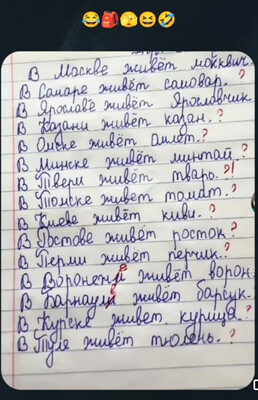 В Москве живёт москвич.
В Самаре живёт самовар.?
В Ярославе живёт Ярославчик
В Казани живёт казан.?
В Омске живёт омлет.?
В Минске живёт минтай.?
В Твери живёт тварь.?!
В Томске живёт томат.?
В Киеве живёт киви.?
В Ростове живёт росток?
В Перми живёт перчик.?
В Воронеже живёт ворон.
В Барнауле живёт барсук.
В Курске живет курица.?
В Туле живёт тюлень.?